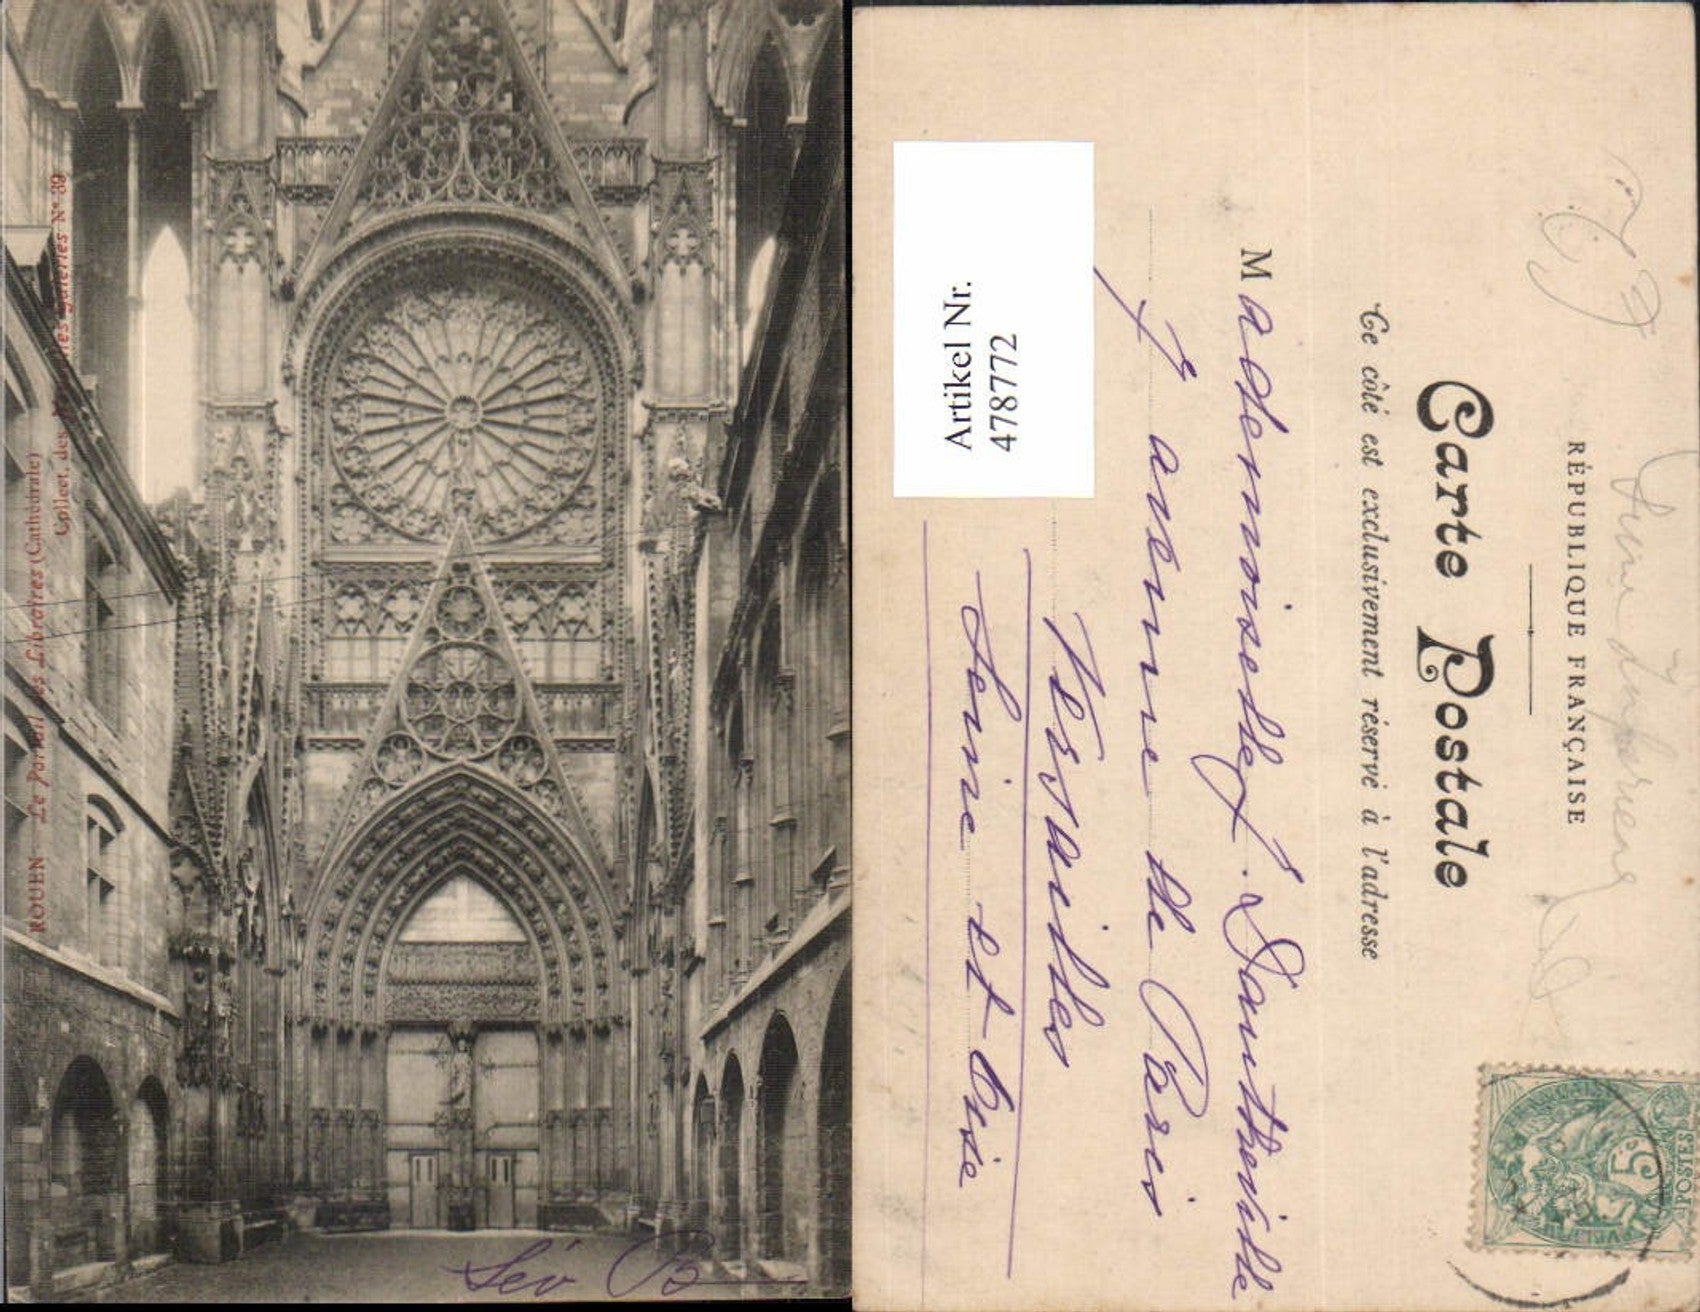 ROUEN — Le Portail des Libraires (Cathédrale)
Collect. des Galeries N° 39
Artikel Nr.
478772
RÉPUBLIQUE FRANÇAISE
Carte Postale
Ce côté est exclusivement réservé à l'adresse
Mademoiselle J. Dautheville
7 avenue de Paris
Versailles
Seine et Oise
5
POSTES